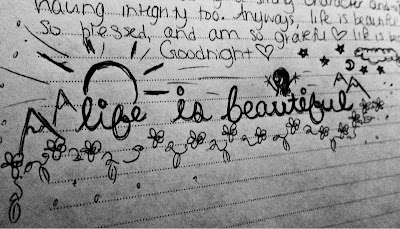 having integrity too. Anyways, life is beautiful
So blessed, and am so grateful ♡ life is
Goodnight ♡
life is beautiful